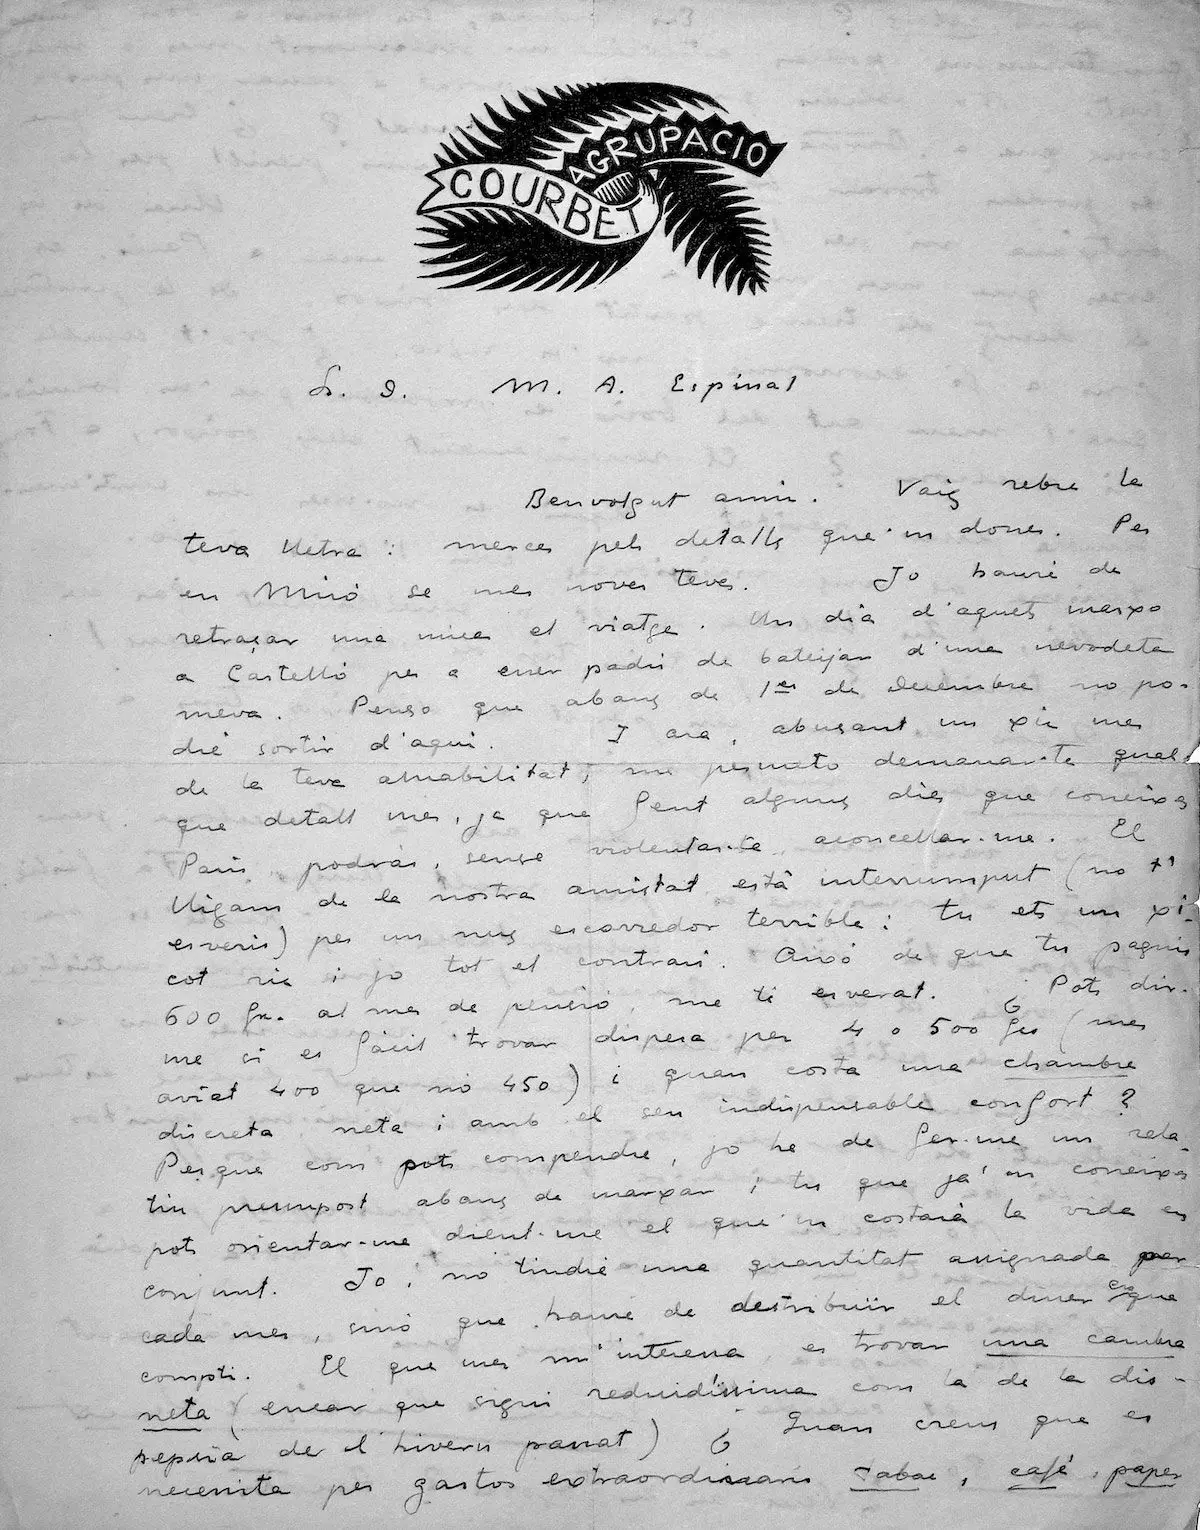 AGRUPACIO
COURBET
Sr. D. M. A. Espinal
Benvolgut amic. Vaig rebre la
teva lletra: merces pels detalls que'm dones. Per
en Miró se mes noves teves. Jo hauré de
retraçar una mica el viatge. Un dia d'aquets marxo
a Castelló per a esser padrí de bateijar d'una nevodeta
meva. Penso que abans de 1er de Decembre no po-
dré sortir d'aqui. I ara, abusant un xic mes
de la teva amabilitat, me permeto demanar-te quel-
que detall mes, ja que fent alguns dies que coneixes
Paris, podrás, sense violentar-te, aconcellar-me. El
lligam de la nostra amistat está interrumput (no t'
esveris) per un nus escorredor terrible: tu ets un xi-
cot ric i jo tot el contrari. Aixó de que tu paguis
600 fr. al mes de pensió, me ti esverat. ¿Pots dir-
me si es fácil trovar dispesa per 4 o 500 frs (mes
aviat 400 que nó 450) i quan costa una chambre
discreta neta i amb el seu indispensable confort?
Perque com pots compendre, jo he de fer-me un rela-
tiu presumpost abans de marxar i tu que ja'n coneixes
pots orientar-me dient-me el que'm costará la vida en
conjunt. Jo, no tindré una quantitat assignada per
cada mes, sinó que hauré de destribuir el diner que
compti. El que mes m'interessa es trovar una cambra
neta (encar que sigui reduidíssima com la de la dis-
pepsia de l'hivern passat) ¿Quan creus que es
necessita per gastos extraordinaris tabac, café, paper